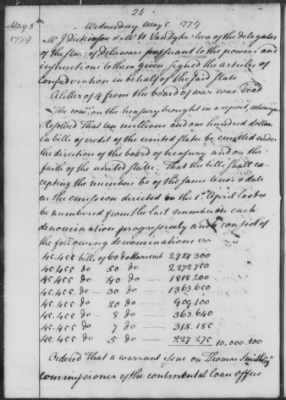 24
May 5th 1779
Wednesday May 5. 1779
Mr J Dickinson & Mr N VanDyke two of the delegates
of the State of Delaware pursuant to the powers and
instructions to them given signed the articles of
Confederation in behalf of the said State
A letter of 4 from the board of war was read
The comee on the treasury brought in a report, whereupon
Resolved That ten millions and one hundred dollars
in bills of credit of the united States be emitted under
the direction of the board of treasury and on the
faith of the united States. That the bills shall ex-
cepting the numbers be of the same tenor & date
as the emission directed on the 1st April last & to
be numbered from the last number in each
denomination progressively and to consist of
the following denominations viz
45.455 bills of 60 dollars each 2727300
45.455 do 50 do 2272750
45.455 do 40 do 1818200
45.455 do 30 do 1363650
45.455 do 20 do 909100
45.455 do 8 do 363640
45.455 do 7 do 318.185
45.455 do 5 do 227275 10.000.100
Ordered That a warrant issue on Thomas Smith esq
commissioner of the continental loan office